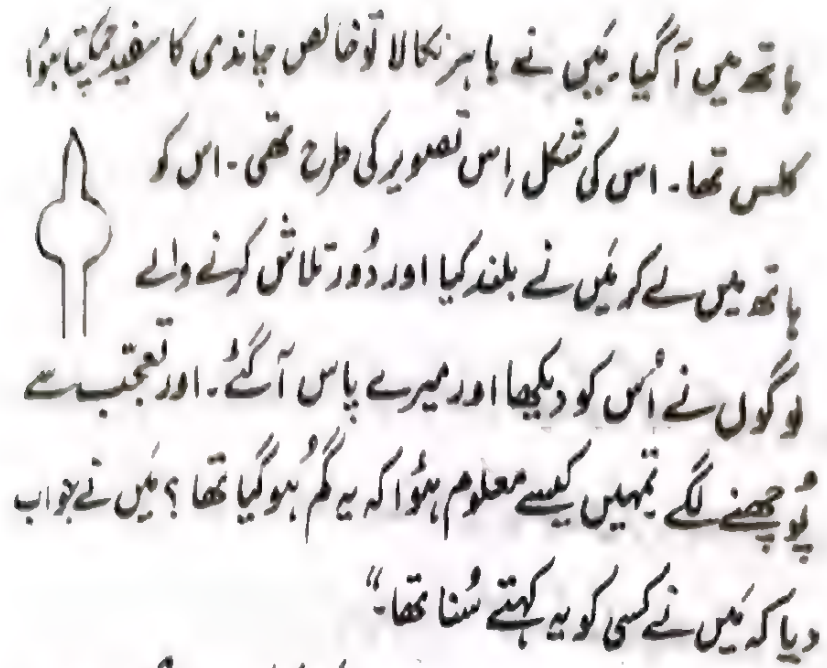 ہاتھ میں آگیا۔ مَیں نے باہر نکالا تو خالص چاندی کا سفید چمکتا ہؤا
کلس تھا۔ اس کی شکل اِس تصویر کی طرح تھی۔ اس کو
ہاتھ میں لے کر مَیں نے بلند کیا اور دُور تلاش کرنے والے
لوگوں نے اُس کو دیکھا اور میرے پاس آگئے۔ اور تعجّب سے
پُوچھنے لگے تمہیں کیسے معلوم ہؤا کہ یہ گُم ہوگیا تھا؟ مَیں نے جواب
دیا کہ مَیں نے کسی کو یہ کہتے سُنا تھا۔“